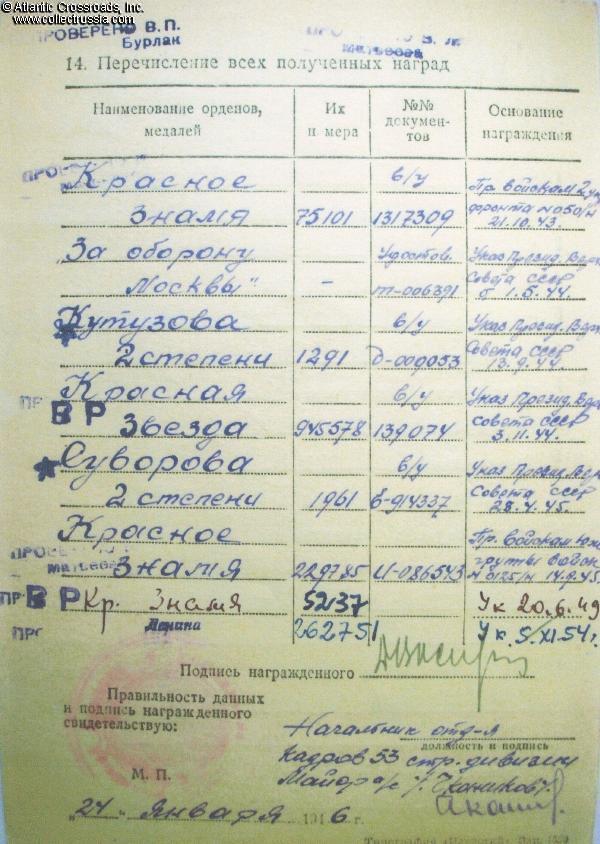 © Atlantic Crossroads, Inc.
www.collectrussia.com
ПРОВЕРЕНО В.П.
Бурлак
14. Перечисление всех полученных наград
Наименование орденов, медалей | Их н мера | №№ документов | Основание награждения
Красное | в/у | Пр. войскам 2 Укр
Знамя 75101 1317309 фронта № 050/н 21.10.43.
„За оборону Удостов. Указ Презид. Верх
Москвы" – т-006391 Совета СССР 1.5.44.
Кутузова в/у Указ Презид. Верх
2 степени 1291 Совета СССР 13.9.44.
Красная в/у Указ Презид. Верх
ВР Звезда 945578 139074 Совета СССР 3.11.44.
Суворова в/у Указ Презид. Верх
2 степени 1961 Совета СССР 28.4.45.
Красное Пр. войскам
Знамя 229785 группы войск 14.9.45.
ВР Кр. Знамя 52137 Ук 20.6.49
Ленина 262751 Ук. 5.XI.54 г.
Подпись награжденного
Правильность данных
и подпись награжденного
свидетельствую:
Начальник отд-я
должность и подпись
кадров 53 стр. дивизии
Майор а/с
М. П.
„24" января 1946 г.